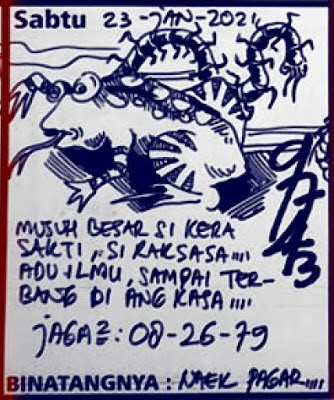 Sabtu 23-JAN-2021
9
7
4
3
MUSUH BESAR SI KERA
SAKTI,, SI RAKSASA,,,,
ADU ILMU, SAMPAI TER-
BANG DI ANGKASA,,,,
JAGA2 : 08-26-79
BINATANGNYA : NAEK PAGAR,,,,